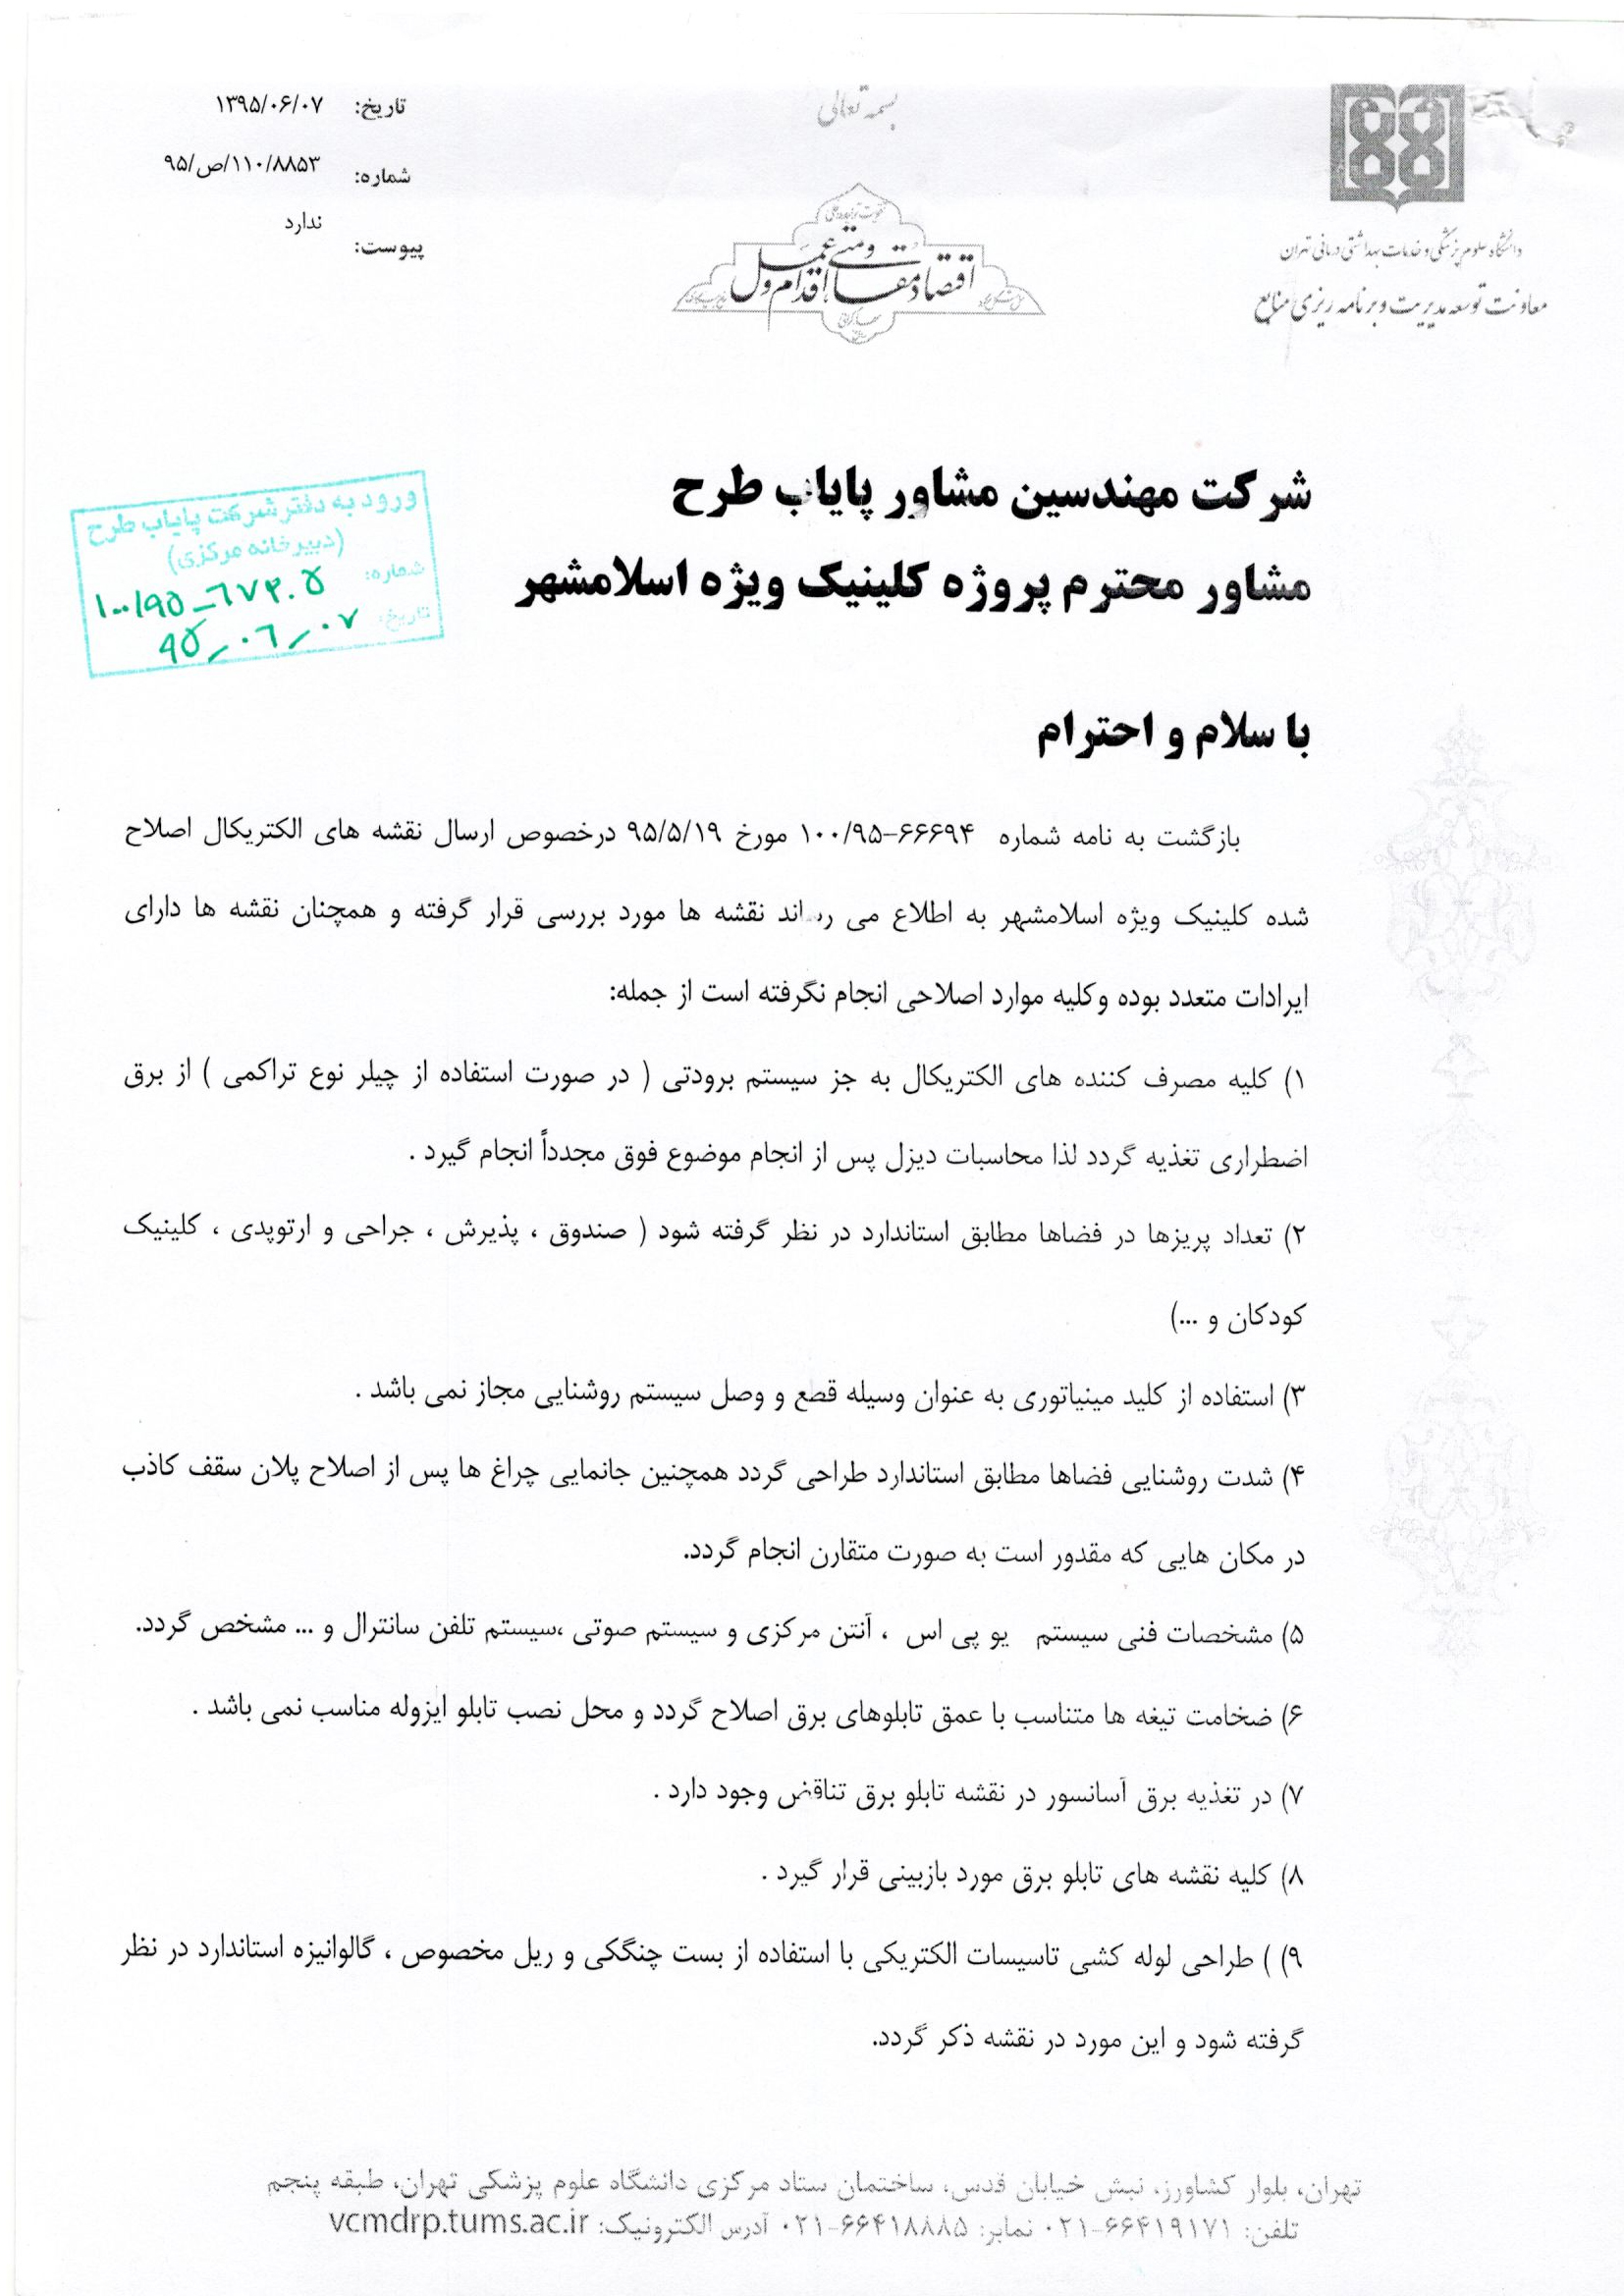 بسمه تعالی
تاریخ: ۱۳۹۵/۰۶/۰۷
شماره: ۹۵/ص/۱۱۰/۸۸۵۳
پیوست: ندارد
دانشگاه علوم پزشکی و خدمات بهداشتی درمانی تهران
معاونت توسعه مدیریت و برنامه ریزی منابع
اقتصاد مقاومتی اقدام و عمل
شرکت مهندسین مشاور پایاب طرح
مشاور محترم پروژه کلینیک ویژه اسلامشهر
ورود به دفتر شرکت پایاب طرح
(دبیرخانه مرکزی)
شماره: ۱۰۰/۹۵-۶۷۳۰۵
تاریخ: ۹۵-۰۶-۰۷
با سلام و احترام
بازگشت به نامه شماره ۱۰۰/۹۵-۶۶۶۹۴ مورخ ۹۵/۵/۱۹ درخصوص ارسال نقشه های الکتریکال اصلاح
شده کلینیک ویژه اسلامشهر به اطلاع می رساند نقشه ها مورد بررسی قرار گرفته و همچنان نقشه ها دارای
ایرادات متعدد بوده وکلیه موارد اصلاحی انجام نگرفته است از جمله:
۱) کلیه مصرف کننده های الکتریکال به جز سیستم برودتی ( در صورت استفاده از چیلر نوع تراکمی ) از برق
اضطراری تغذیه گردد لذا محاسبات دیزل پس از انجام موضوع فوق مجدداً انجام گیرد .
۲) تعداد پریزها در فضاها مطابق استاندارد در نظر گرفته شود ( صندوق ، پذیرش ، جراحی و ارتوپدی ، کلینیک
کودکان و ...)
۳) استفاده از کلید مینیاتوری به عنوان وسیله قطع و وصل سیستم روشنایی مجاز نمی باشد .
۴) شدت روشنایی فضاها مطابق استاندارد طراحی گردد همچنین جانمایی چراغ ها پس از اصلاح پلان سقف کاذب
در مکان هایی که مقدور است به صورت متقارن انجام گردد.
۵) مشخصات فنی سیستم یو پی اس ، آنتن مرکزی و سیستم صوتی ،سیستم تلفن سانترال و ... مشخص گردد.
۶) ضخامت تیغه ها متناسب با عمق تابلوهای برق اصلاح گردد و محل نصب تابلو ایزوله مناسب نمی باشد .
۷) در تغذیه برق آسانسور در نقشه تابلو برق تناقض وجود دارد .
۸) کلیه نقشه های تابلو برق مورد بازبینی قرار گیرد .
۹) ) طراحی لوله کشی تاسیسات الکتریکی با استفاده از بست چنگکی و ریل مخصوص ، گالوانیزه استاندارد در نظر
گرفته شود و این مورد در نقشه ذکر گردد.
تهران، بلوار کشاورز، نبش خیابان قدس، ساختمان ستاد مرکزی دانشگاه علوم پزشکی تهران، طبقه پنجم
تلفن: ۰۲۱-۶۶۴۱۹۱۷۱ نمابر: ۰۲۱-۶۶۴۱۸۸۸۵ آدرس الکترونیک: vcmdrp.tums.ac.ir